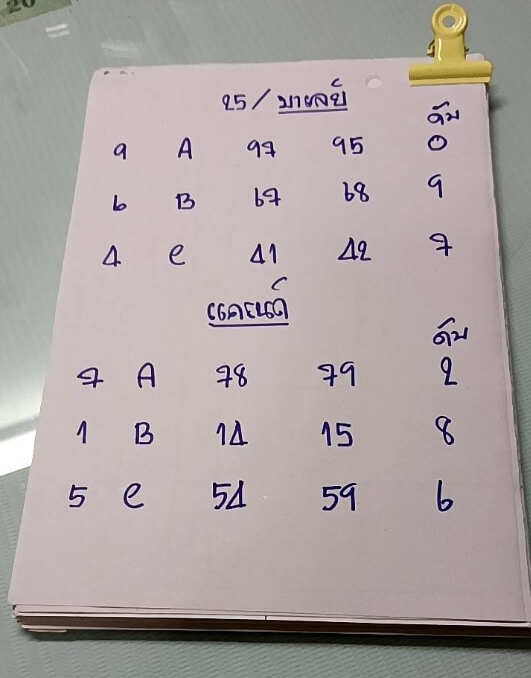 20
25 / มาเลย์
ดับ
9 A 97 95 0
6 B 67 68 9
4 C 41 42 7
ดับ
7 A 78 79 2
1 B 14 15 8
5 C 54 59 6